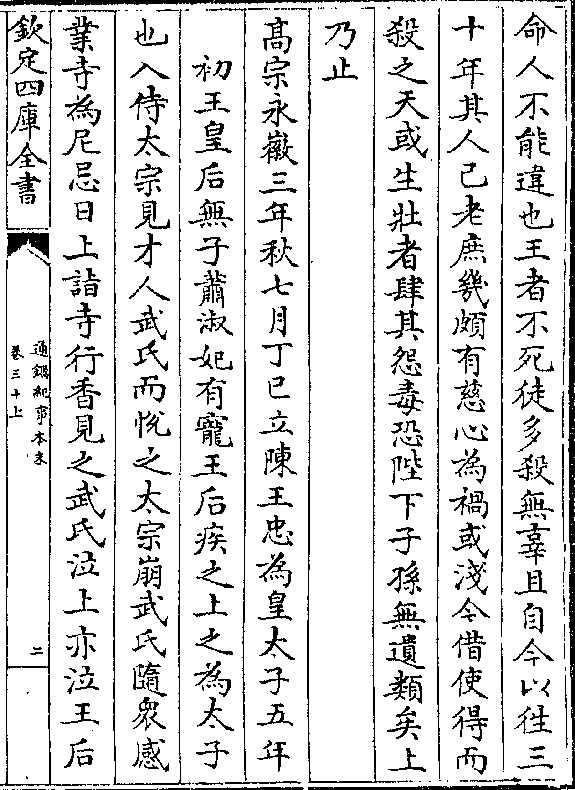 命人不能違也王者不死徒多殺無辜且自今以徃三
十年其人已老庶幾頗有慈心為禍或淺今借使得而
殺之天或生壯者肆其怨毒恐陛下子孫無遺類矣上
乃止
髙宗永徽三年秋七月丁巳立陳王忠為皇太子五年
初王皇后無子蕭淑妃有寵王后疾之上之為太子
也入侍太宗見才人武氏而悅之太宗崩武氏隨衆感
業寺為尼忌日上詣寺行香見之武氏泣上亦泣王后
欽定四庫全書
通鑑紀事本末
卷三十上
二